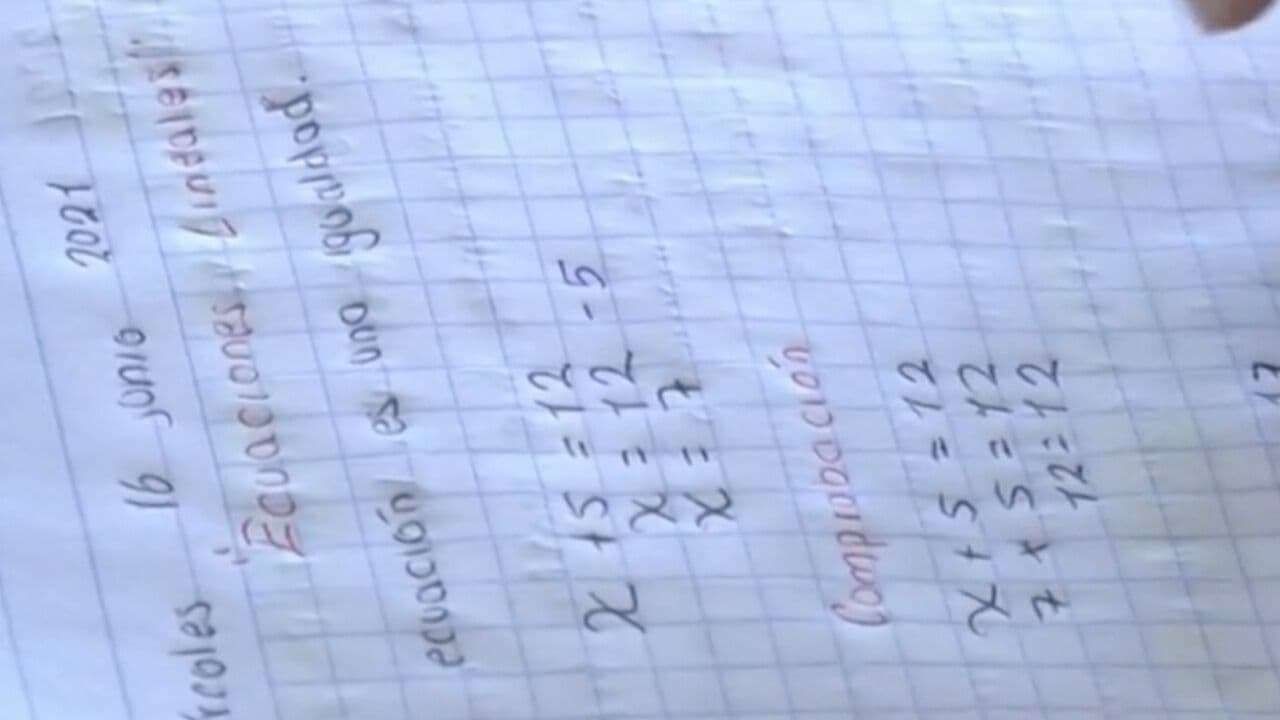 16 junio 2021
"Ecuaciones Lineales"
ecuación es una igualdad.
x + 5 = 12
x = 12 - 5
x = 7
Comprobación
x + 5 = 12
7 + 5 = 12
12 = 12